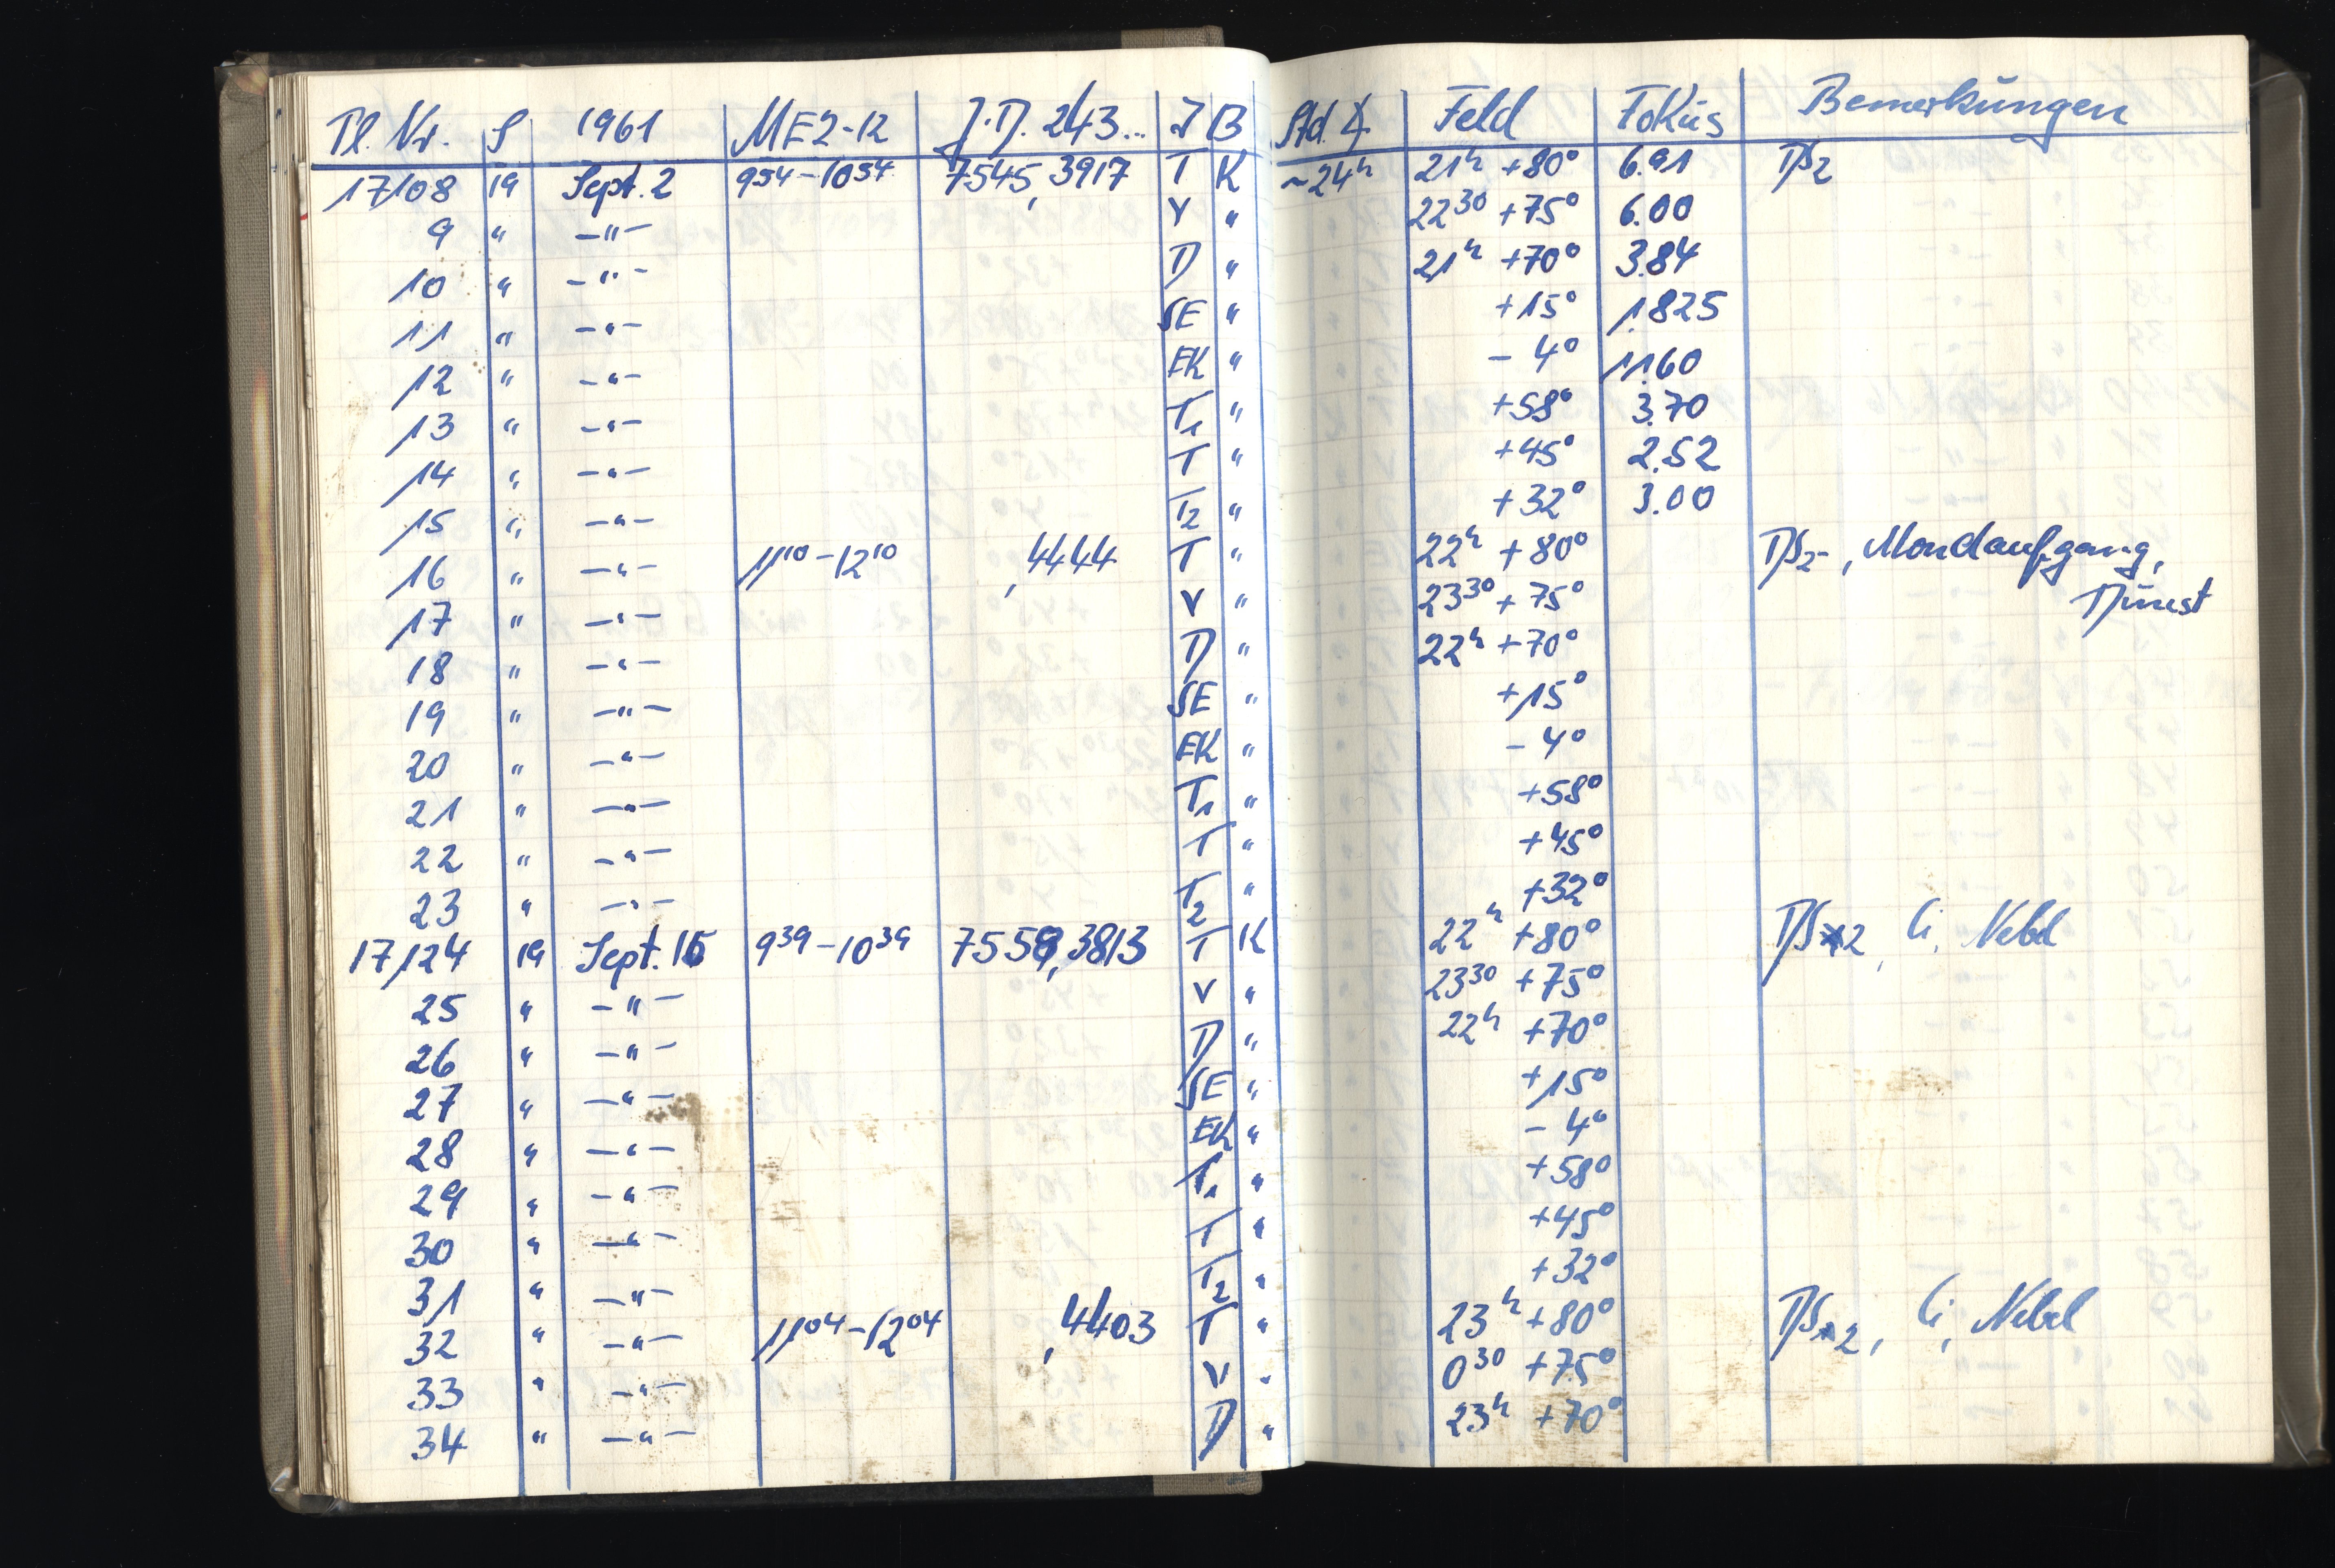 Pl. Nr. S 1961 MEZ-12 J.D. 243... I B Std ∢ Feld Fokus Bemerkungen
17108 19 Sept. 2 9 54 - 10 54 7545,3917 T K ~24h 21h +80° 6.91 DS2
9 " -"- V " 22 30 +75° 6.00
10 " -"- D " 21h +70° 3.84
11 " -"- SE " +15° 1.825
12 " -"- EK " - 4° 11.60
13 " -"- T1 " +58° 3.70
14 " -"- T " +45° 2.52
15 " -"- T2 " +32° 3.00
16 " -"- 11 10 - 12 10 ,4444 T " 22h +80° DS2-, Mondaufgang,
Dunst
17 " -"- V " 23 30 +75°
18 " -"- D " 22h +70°
19 " -"- SE " +15°
20 " -"- EK " - 4°
21 " -"- T1 " +58°
22 " -"- T " +45°
23 " -"- T2 " +32°
17124 19 Sept. 9 39 - 10 39 ,3813 T K 22h +80° DS 2, Ci, Nebel
25 " -"- V " 23 30 +75°
26 " -"- D " 22h +70°
27 " -"- SE " +15°
28 " -"- EK " - 4°
29 " -"- T1 " +58°
30 " -"- T " +45°
31 " -"- T2 " +32°
32 " -"- 11 04 - 12 04 ,4403 T " 23h +80° DS 2, Ci, Nebel
33 " -"- V " 0 30 +75°
34 " -"- D " 23h +70°